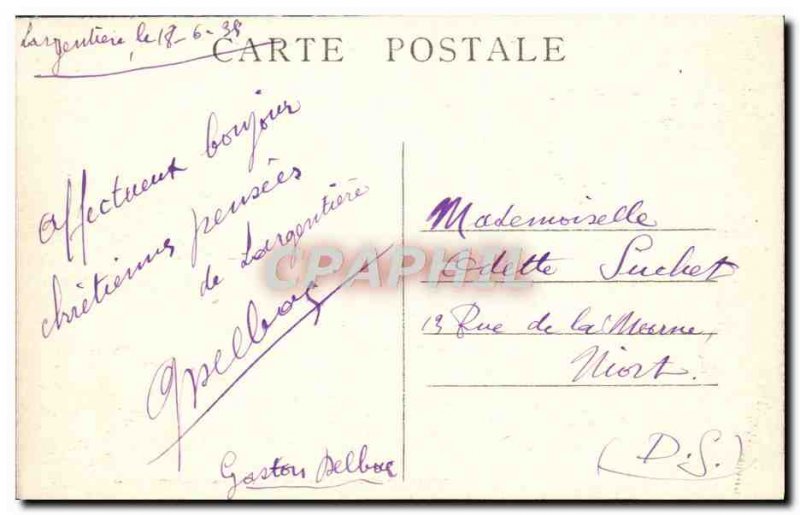 Largentière, le 18-6-38
CARTE POSTALE
Affectueux bonjour
chrétiennes pensées
de Largentière
GDelbos
Gaston Delbos
Mademoiselle
Odette Suchet
13 Rue de la Marne,
Niort.
(D.S.)
CPAPHIL.COM